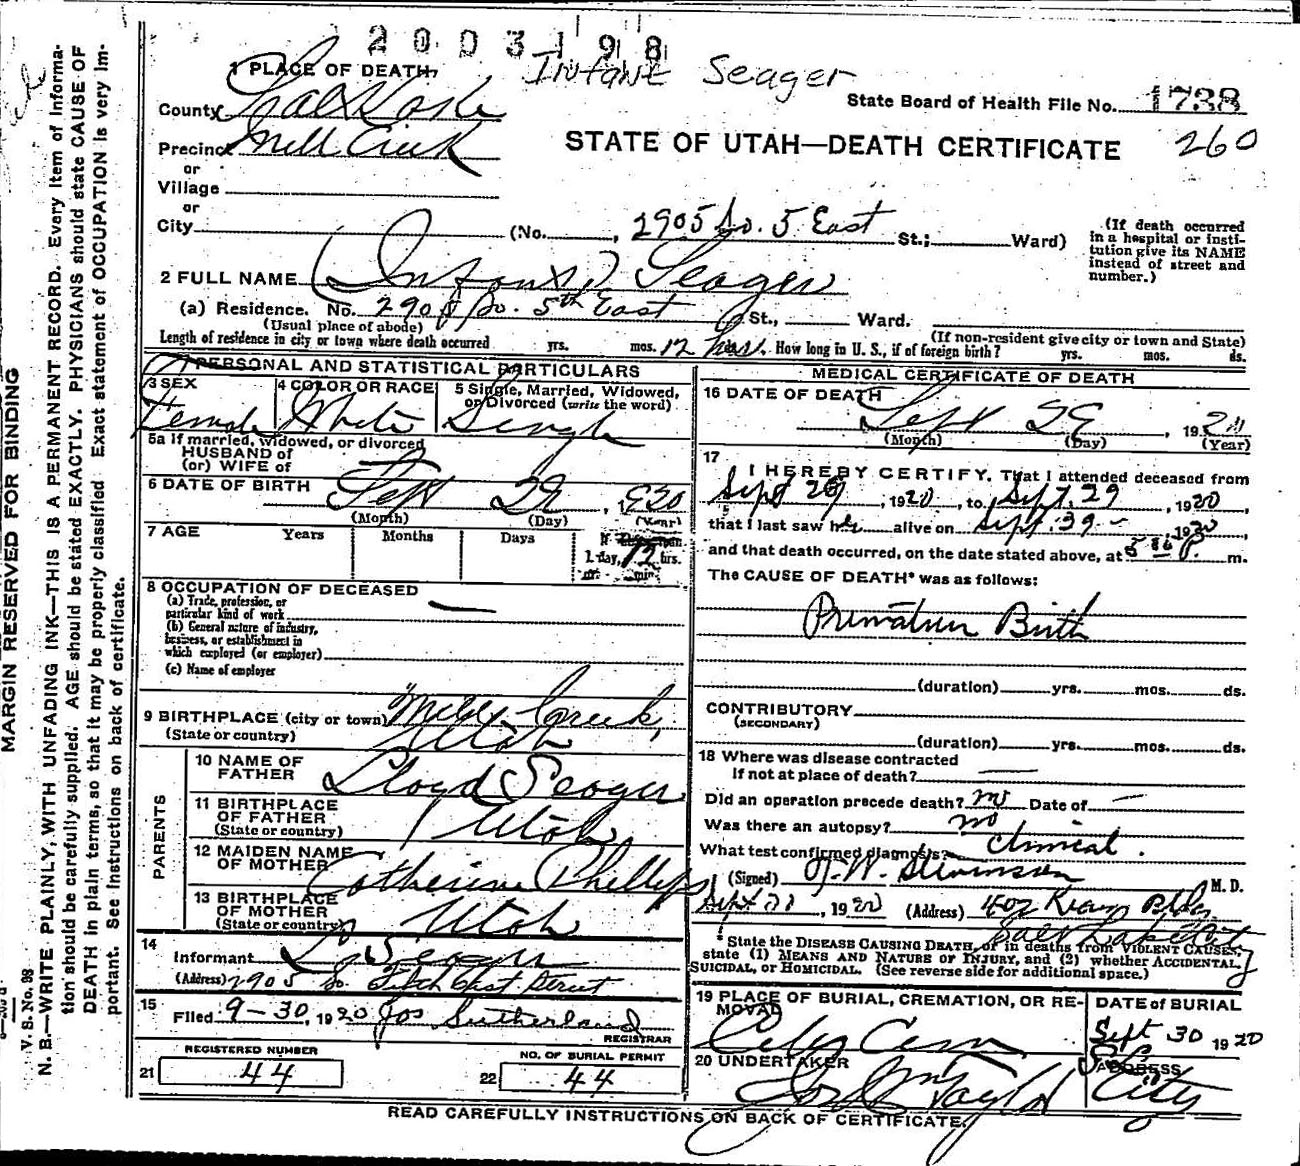 2003198
1 PLACE OF DEATH, Infant Seager
State Board of Health File No. 1738
County Salt Lake
260
STATE OF UTAH—DEATH CERTIFICATE
Precinct Mill Creek
or
Village
or
City (No. , 2905 So. 5 East St.; Ward)
(If death occurred
in a hospital or insti-
tution give its NAME
instead of street and
number.)
2 FULL NAME (Infant) Seager
(a) Residence. No. 2905 So. 5th East St., Ward.
(Usual place of abode) (If non-resident give city or town and State)
Length of residence in city or town where death occurred yrs. mos. 12 hrs. How long in U. S., if of foreign birth? yrs. mos. ds.
PERSONAL AND STATISTICAL PARTICULARS
3 SEX
Female
4 COLOR OR RACE
White
5 Single, Married, Widowed,
or Divorced (write the word)
Single
5a If married, widowed, or divorced
HUSBAND of
(or) WIFE of
6 DATE OF BIRTH Sept 29, 1920
(Month) (Day) (Year)
7 AGE Years Months Days If
1 day, 12 hrs.
or min.
8 OCCUPATION OF DECEASED
(a) Trade, profession, or
particular kind of work —
(b) General nature of industry,
business, or establishment in
which employed (or employer)
(c) Name of employer
9 BIRTHPLACE (city or town) Mill Creek,
(State or country) Utah
PARENTS
10 NAME OF
FATHER Lloyd Seager
11 BIRTHPLACE
OF FATHER
(State or country) Utah
12 MAIDEN NAME
OF MOTHER Catherine Phillips
13 BIRTHPLACE
OF MOTHER
(State or country) Utah
14
Informant L. Seager
(Address) 2905 So. Fifth East Street
15
Filed 9-30, 1920 Jos Sutherland
REGISTRAR
REGISTERED NUMBER
21 44
NO. OF BURIAL PERMIT
22 44
MEDICAL CERTIFICATE OF DEATH
16 DATE OF DEATH
Sept 29, 1920
(Month) (Day) (Year)
17
I HEREBY CERTIFY, That I attended deceased from
Sept 29, 1920, to Sept. 29, 1920
that I last saw her alive on Sept. 29 - 1920
and that death occurred, on the date stated above, at 5 P. m.
The CAUSE OF DEATH* was as follows:
Premature Birth
(duration) yrs. mos. ds.
CONTRIBUTORY
(SECONDARY)
(duration) yrs. mos. ds.
18 Where was disease contracted
If not at place of death? —
Did an operation precede death? no Date of —
Was there an autopsy? no
What test confirmed diagnosis? Clinical.
(Signed) O.W. Stevenson M. D.
Sept, 1920 (Address) 402 Kearns Bldg.
Salt Lake City
* State the DISEASE CAUSING DEATH, or in deaths from VIOLENT CAUSES,
state (1) MEANS AND NATURE OF INJURY, and (2) whether ACCIDENTAL,
SUICIDAL, or HOMICIDAL. (See reverse side for additional space.)
19 PLACE OF BURIAL, CREMATION, OR RE-
MOVAL
City Cem
DATE of BURIAL
Sept 30 1920
20 UNDERTAKER
Jos Wm Taylor
ADDRESS
S L City
READ CAREFULLY INSTRUCTIONS ON BACK OF CERTIFICATE.
MARGIN RESERVED FOR BINDING
V. S. No. 98
N. B.—WRITE PLAINLY, WITH UNFADING INK—THIS IS A PERMANENT RECORD. Every item of informa-
tion should be carefully supplied. AGE should be stated EXACTLY. PHYSICIANS should state CAUSE OF
DEATH in plain terms, so that it may be properly classified. Exact statement of OCCUPATION is very im-
portant. See instructions on back of certificate.